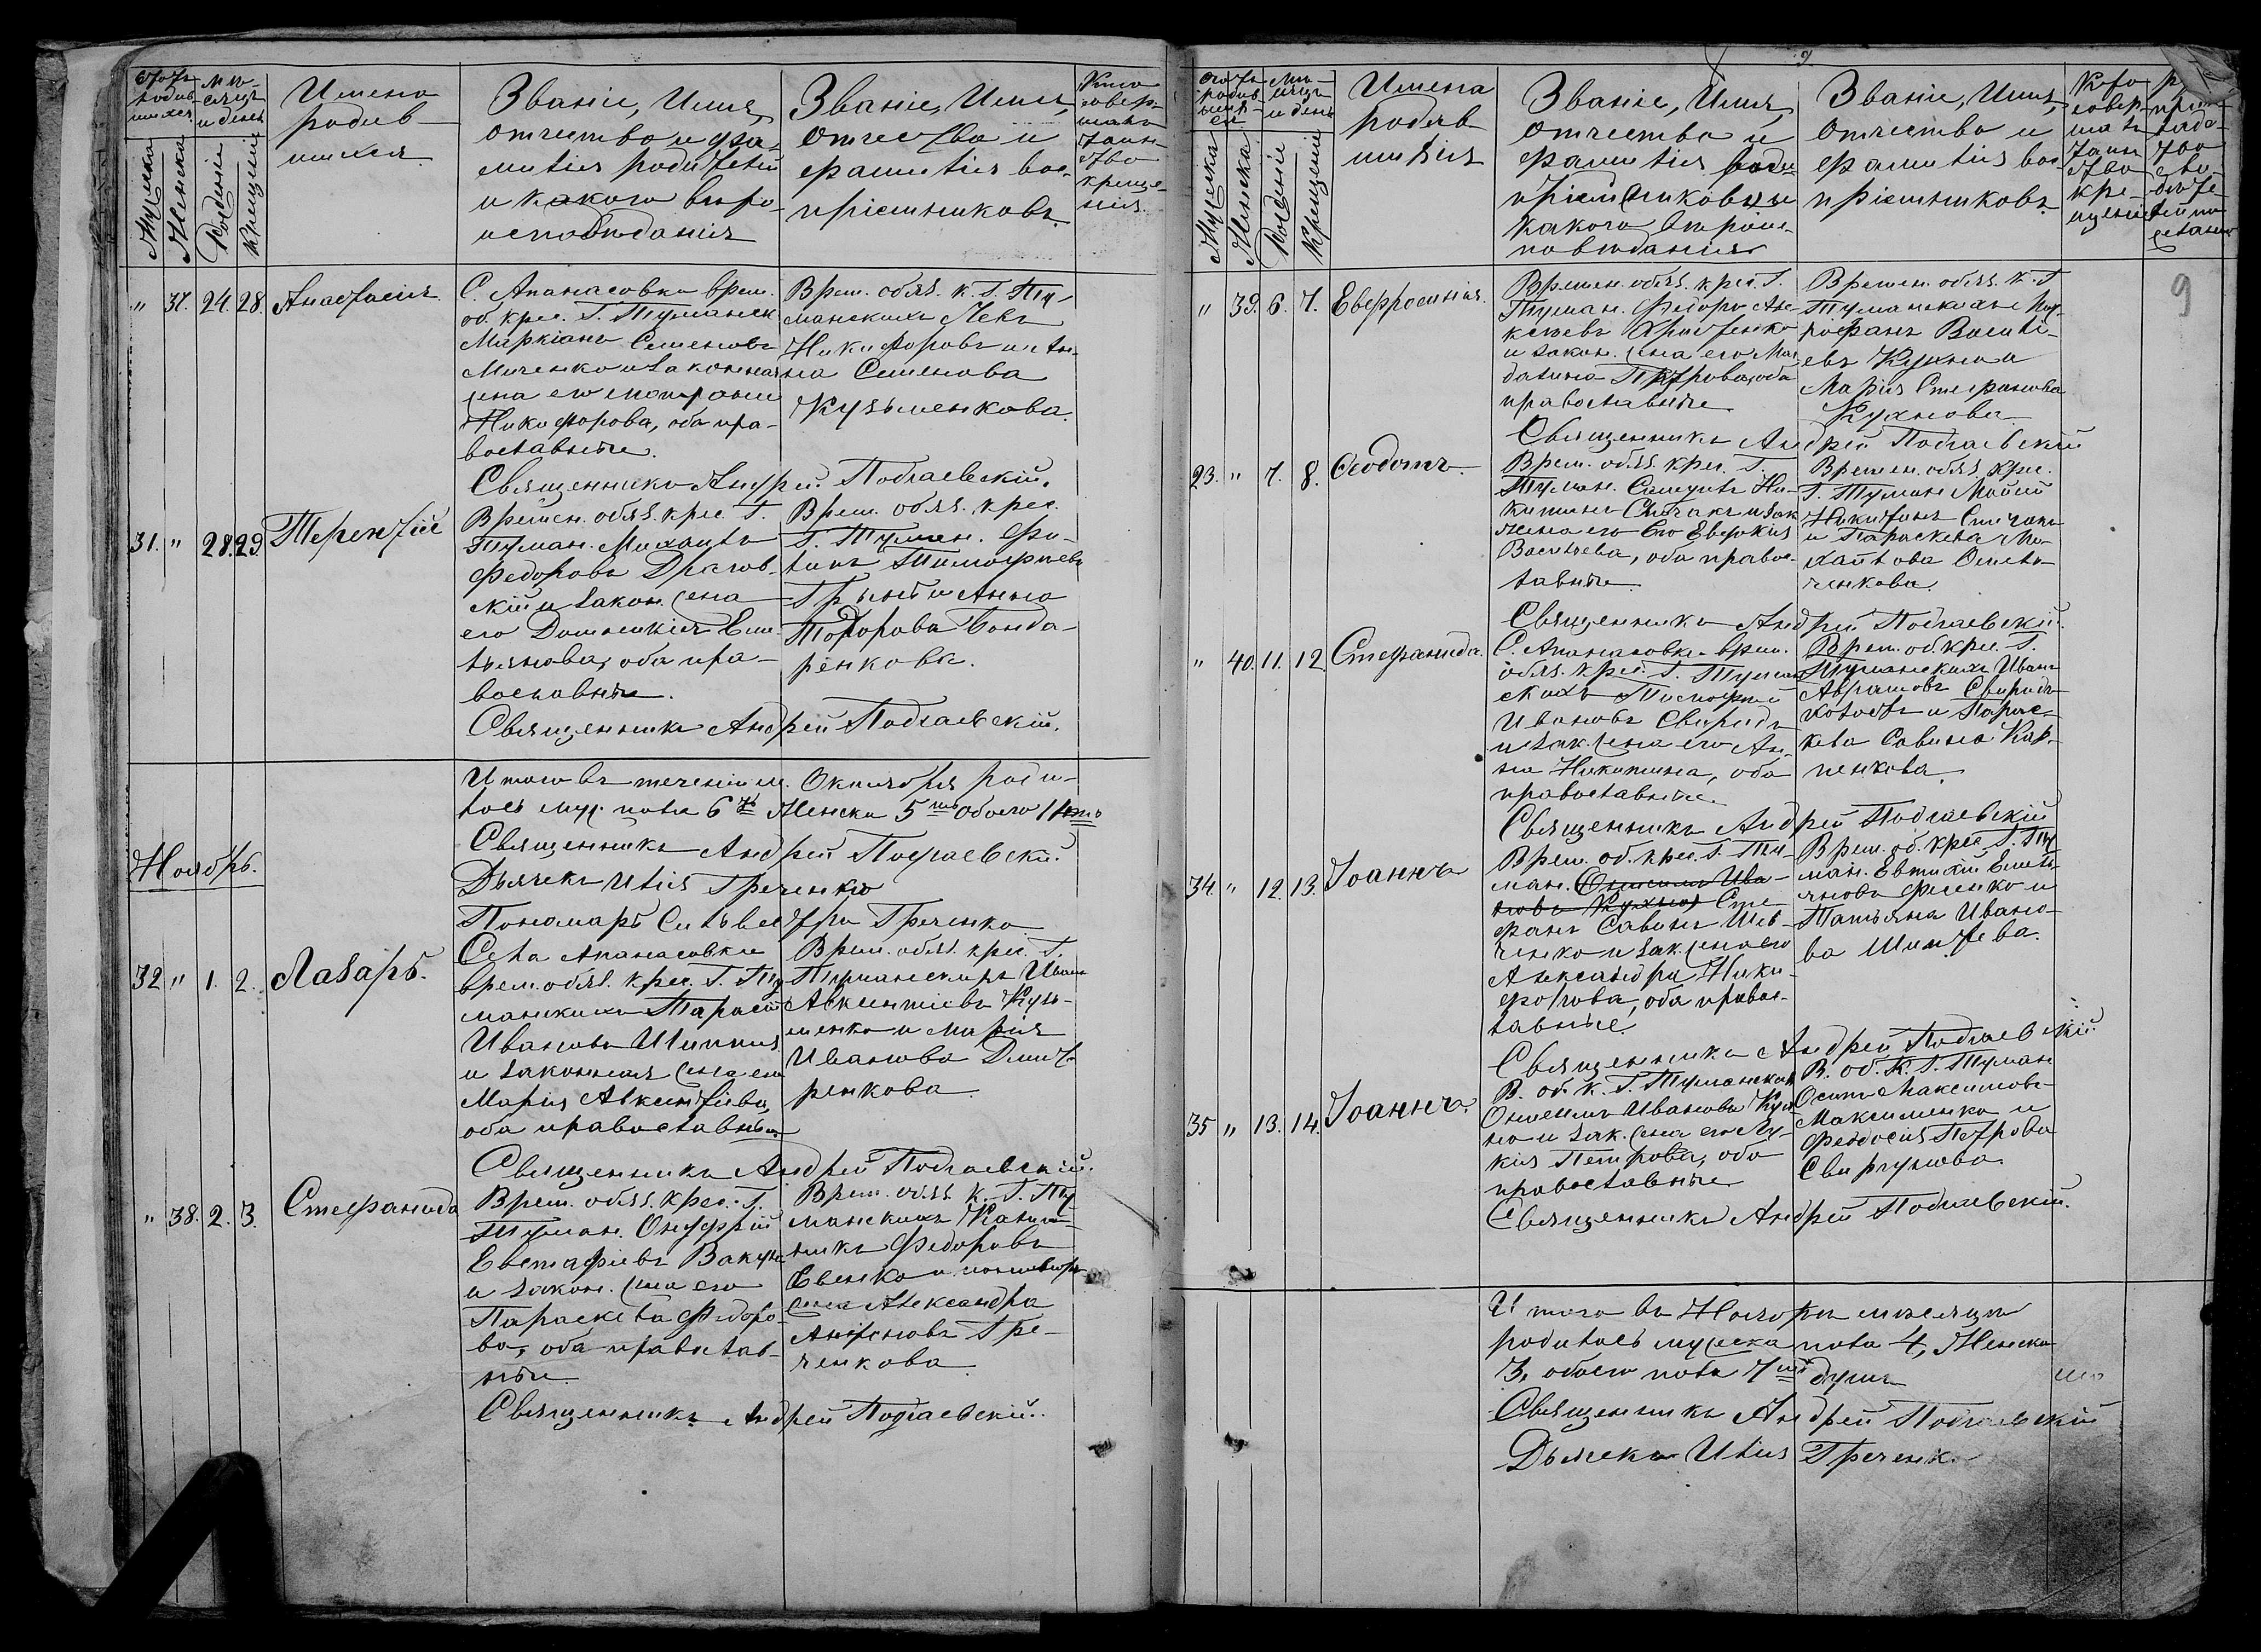 Счотъ родившихся
Мѣсяцъ и день
Имена родившихся
Званіе, Имя, отчество и фамилія родителей и какого вѣроисповѣданія
Званіе, Имя, отчество и фамилія воспріемниковъ
Кто совершалъ таинство крещенія
Мужеска
Женска
Рожденія
Крещенія
" 37. 24. 28. Анастасія.
С. Апанасовки врем.
об. крес. Г. Туманск
Маркіанъ Семеновъ
и законная
жена его
Никифорова, оба пра-
вославные.
Врем. обяз. к. Г. Ту-
манскихъ Левъ
Никифоровъ и Ан-
на Семенова
Кузьменкова.
Священникъ Андрей Подгаевскій.
31. " 28. 29. Терентій
Времен. обяз. крес. Г.
Туман. Михаилъ
Федоровъ
скій и закон. жена
его Домникія Еме-
льянова, оба пра-
вославные.
Врем. обяз. крес.
Г. Туман. Фи-
липъ Тимофѣевъ
и Анна
Бонда-
ренкова.
Священникъ Андрей Подгаевскій.
Итого въ теченіи м. Октября роди-
лось муж. пола 6ть Женска 5ть обоего 11ть
Священникъ Андрей Подгаевскій.
Дьячекъ Илія Греченко
Пономарь Сильвестръ Греченко
Ноябрь.
32 " 1. 2. Лазарь.
Села Апанасовки
врем. обяз. крес. Г. Ту-
манскихъ Тарасій
Ивановъ Шиппия
и законная жена его
Марія Авксентіева,
оба православные
Врем. обяз. крес. Г.
Туманскихъ Иванъ
Авксентіевъ Кузь-
менко и Марія
Иванова Дмит-
ренкова.
Священникъ Андрей Подгаевскій.
" 38. 2. 3. Стефанида
Врем. обяз. крес. Г.
Туман. Онуфрій
Евстафіевъ Вакула
и закон. жена его
Параскева Федоро-
ва, оба православ-
ные.
Врем. обяз. к. Г. Ту
манскихъ Калин-
никъ Федоровъ
Евенко и пономаря
жена Александра
Гре-
ченкова
Священникъ Андрей Подгаевскій.
9
Счотъ родившихся
Мѣсяцъ и день
Имена родившихся
Званіе, Имя, отчество и фамилія
какого вѣроис-
повѣданія
Званіе, Имя, отчество и фамилія воспріемниковъ
Кто совершалъ таинство крещенія
Мужеска
Женска
Рожденіе
Крещеніе
9
" 39. 6. 7. Евфросинія.
Времен. обяз. крес. Г.
Туман. Федоръ Але-
ксѣевъ Христенко
и закон. жена его Маг-
далина Петрова, оба
православные
Времен. обяз. к. Г
Туманскихъ Ми-
трофанъ Василі-
евъ Кухно и
Марія Стефанова
Кухнова
Священникъ Андрей Подгаевскій
23. " 7. 8. Феодотъ.
Врем. обяз. крес. Г.
Туман. Самуилъ Ни-
китинъ и зак
жена его Евфимія
Васильева, оба правос-
лавные.
Времен. обяз. крес.
Г. Туман Моисей
Никитинъ
и Параскева Ми-
хайлова Омель-
ченкова.
Священникъ Андрей Подгаевскій.
" 40. 11. 12. Стефанида.
С. Апанасовки врем.
обяз. крес. Г. Туман
скихъ Тимофей
Ивановъ Свиридъ
и зак. жена его Ан-
на Никитина, оба
православные.
Врем. об. крес. Г.
Туманскихъ Иванъ
Аврамовъ Свиридъ
холостъ и Парас-
кева Савина Кар-
пенкова.
Священникъ Андрей Подгаевскій
34. " 12. 13. Іоаннъ
Врем. об. крес. Г. Ту-
ман. Онисимъ Ива-
новъ Кухно Сте-
фанъ Савинъ Шев-
ченко и зак. жена его
Александра Ники-
форова, оба правос-
лавные
Врем. об. крес. Г. Ту
ман. Евтихій Емель-
яновъ Фесенко и
Татьяна Ивано-
ва
Священникъ Андрей Подгаевскій.
35 " 13. 14. Іоаннъ.
В. об. к. Г. Туманскихъ
Онисимъ Ивановъ Кух-
но и зак. жена его Лу-
кія Петрова, оба
православные
В. об. К. Г. Туман
Осипъ Максимовъ
Максименко и
Феодосія Петрова
Священникъ Андрей Подгаевскій.
Итого въ Ноябрѣ мѣсяцѣ
родилось мужеска пола 4, Женска
3, обоего пола 7мь душъ
Священникъ Андрей Подгаевскій
Дьячекъ Илія Греченк.